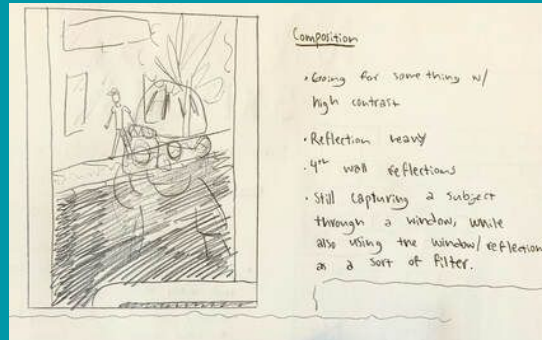 Composition
• Going for something w/
high contrast
• Reflection heavy
• 4th wall reflections
• Still capturing a subject
through a window, while
also using the window/reflection
as a sort of filter.